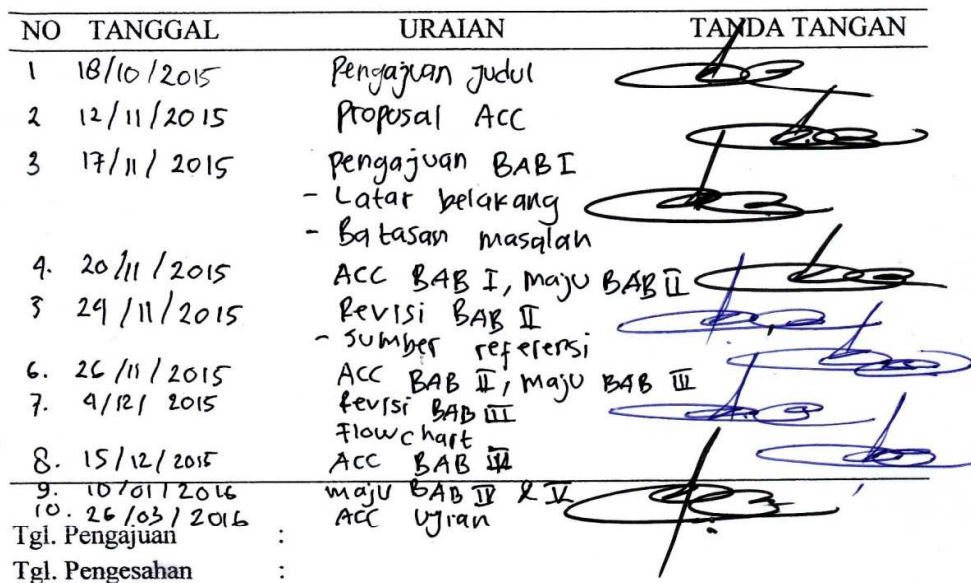 NO TANGGAL URAIAN TANDA TANGAN
1 18/10/2015 Pengajuan Judul
2 12/11/2015 Proposal ACC
3 17/11/2015 Pengajuan BAB I
- Latar belakang
- Batasan masalah
4. 20/11/2015 ACC BAB I, maju BAB II
5 24/11/2015 Revisi BAB II
- Sumber referensi
6. 26/11/2015 ACC BAB II, maju BAB III
7. 4/12/2015 Revisi BAB III
Flowchart
8. 15/12/2015 ACC BAB III
9. 10/01/2016 maju BAB IV & V
10. 26/03/2016 ACC Ujian
Tgl. Pengajuan :
Tgl. Pengesahan :